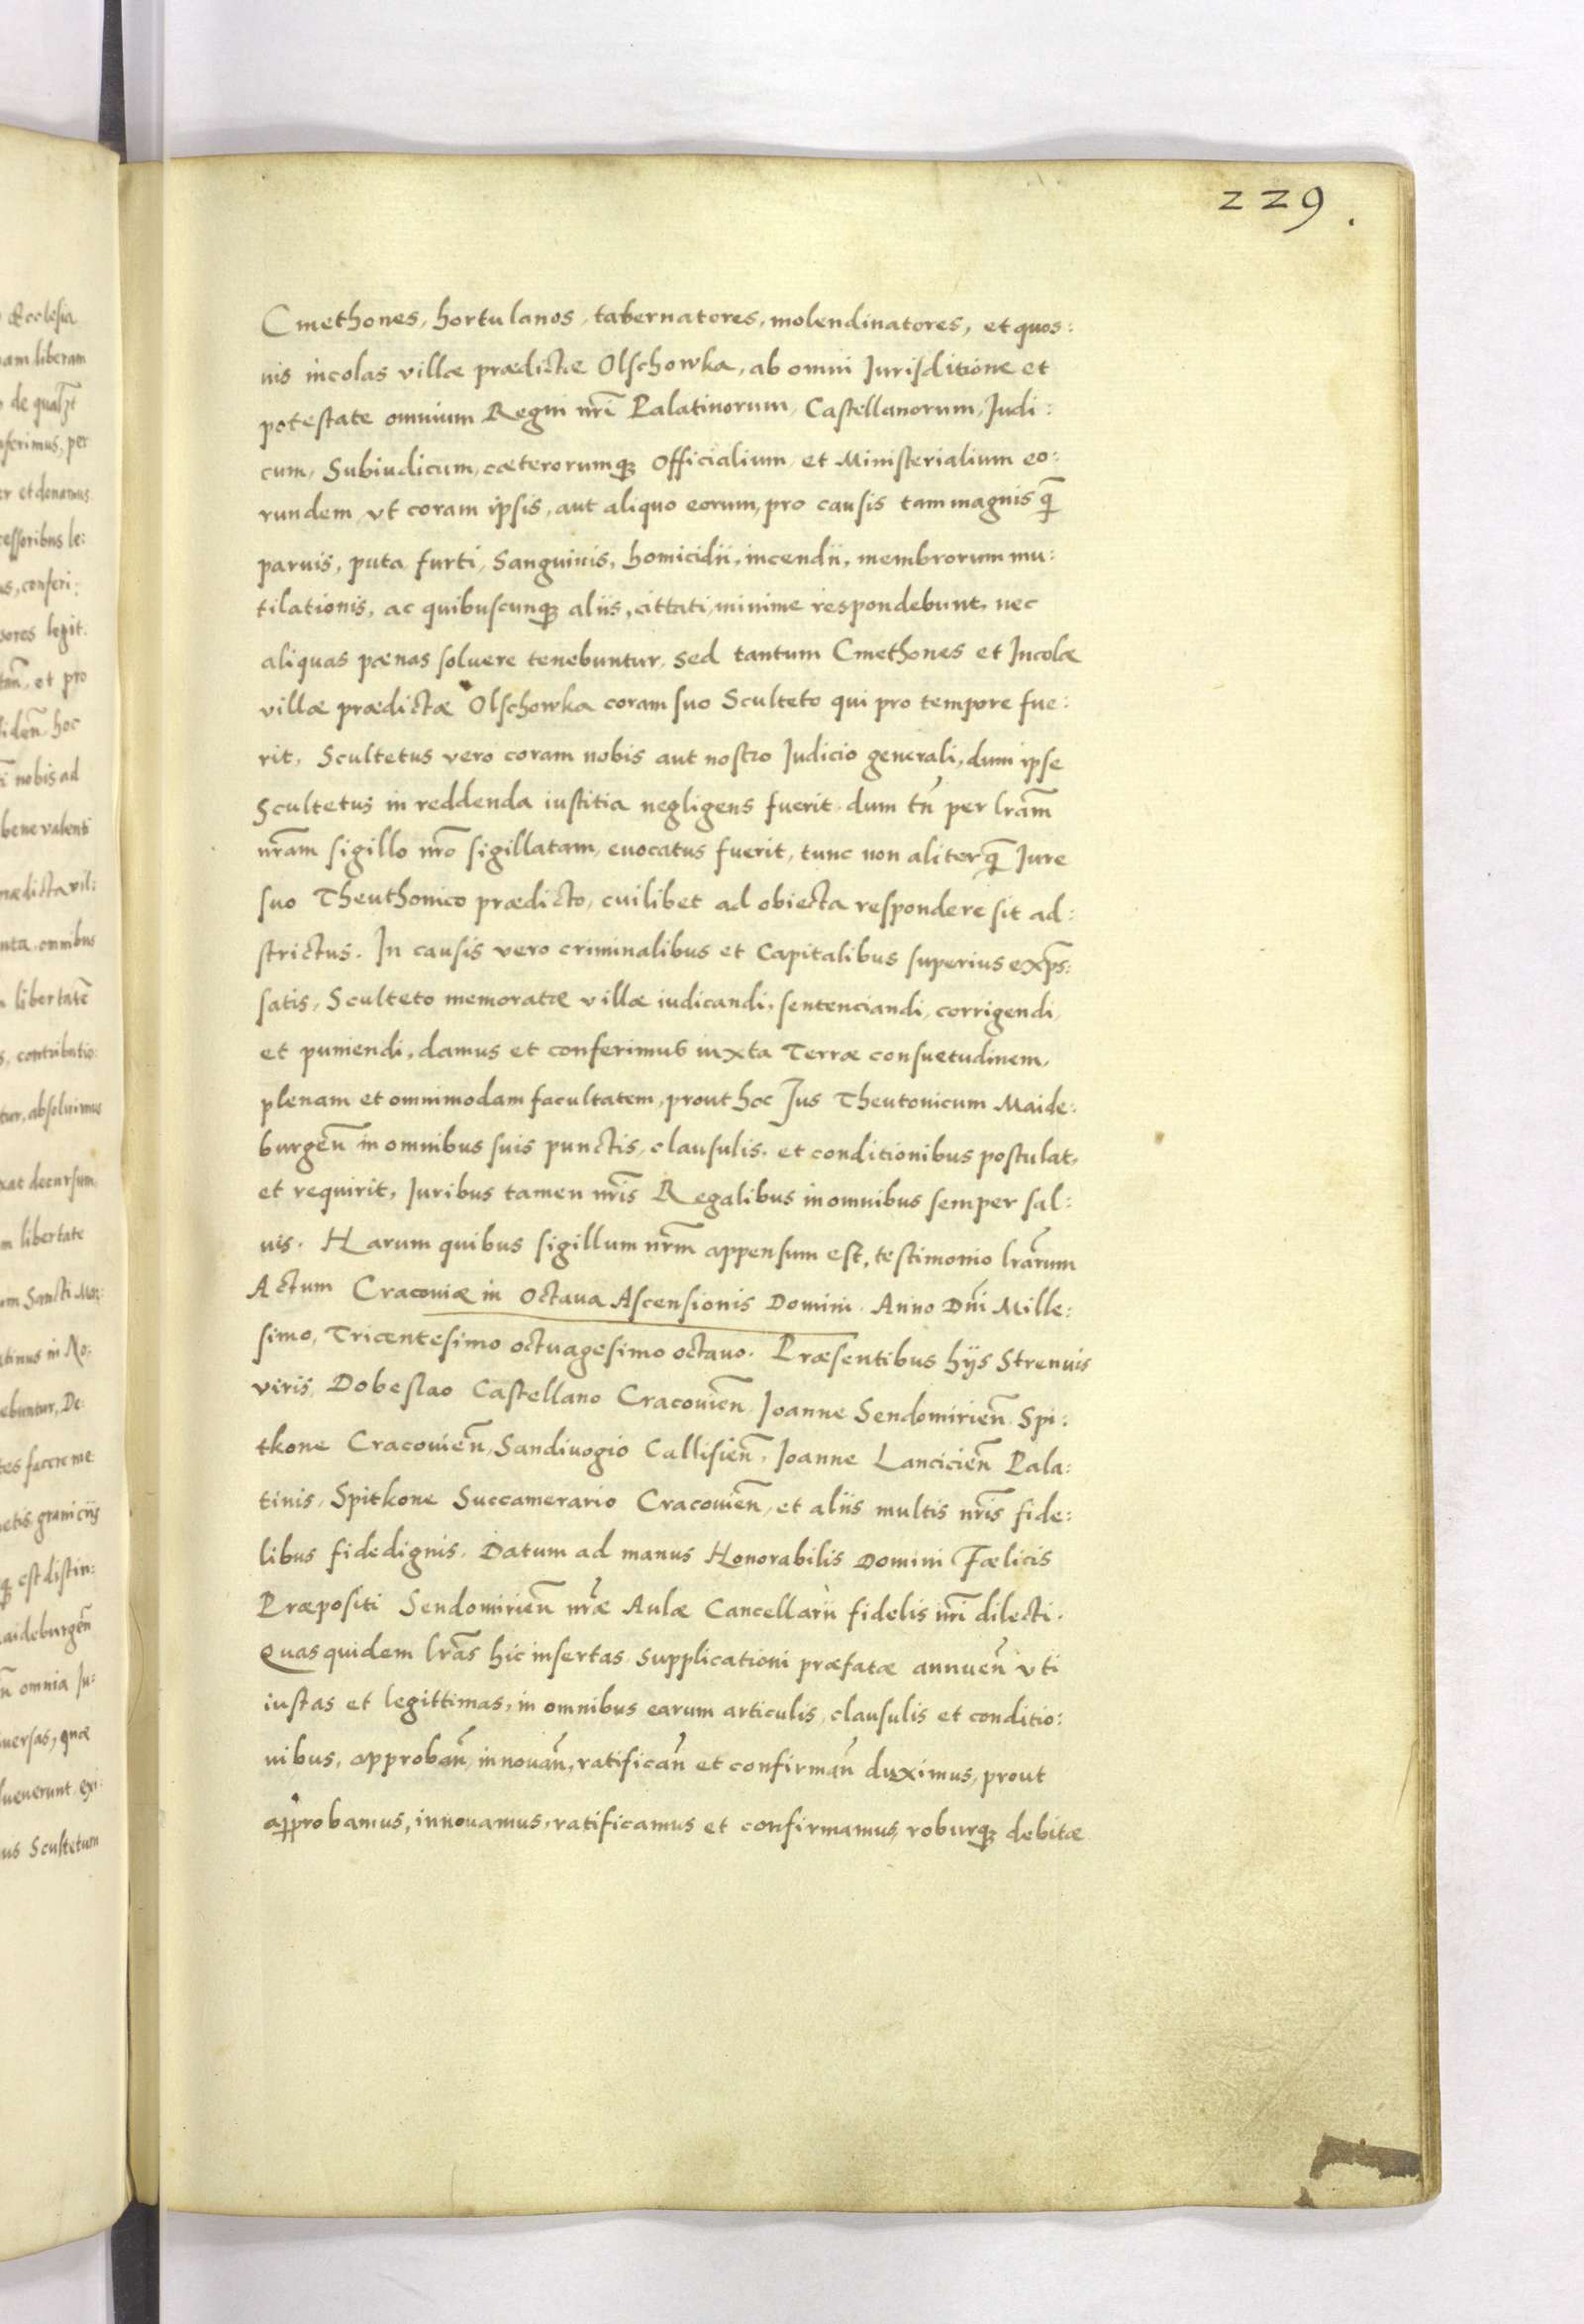 229.
Cmethones, hortulanos, tabernatores, molendinatores, et quos:
uis incolas villæ prædictæ Olschowka, ab omni Jurisditione et
potestate omnium Regni nr̃i Palatinorum, Castellanorum, Judi:
cum, Subiudicum, cæterorumq₃ Officialium, et Ministerialium eo:
rundem, vt coram ipsis, aut aliquo eorum, pro causis tam magnis q̃
paruis, puta furti, Sanguinis, homicidii, incendii, membrorum mu:
tilationis, ac quibuscunq₃ aliis, cittati, minime respondebunt, nec
aliquas pænas soluere tenebuntur, sed tantum Cmethones et Incolæ
villæ prædictæ Olschowka coram suo Sculteto qui pro tempore fue:
rit, Scultetus vero coram nobis aut nostro Judicio generali, dum ipse
Scultetus in reddenda iustitia negligens fuerit, dum tñ per lrãm
nr̃am sigillo nr̃o sigillatam, euocatus fuerit, tunc non aliter q̃ Jure
suo Theuthonico prædicto, cuilibet ad obiecta respondere sit ad:
strictus. In causis vero criminalibus et Capitalibus superius exp̃s:
satis, Sculteto memoratæ villæ iudicandi, sentenciandi, corrigendi,
et puniendi, damus et conferimus iuxta Terræ consuetudinem,
plenam et omnimodam facultatem, prout hoc Jus Theutonicum Maide:
burgeñ in omnibus suis punctis, clausulis, et conditionibus postulat,
et requirit, Juribus tamen nr̃is Regalibus in omnibus semper sal:
uis. Harum quibus sigillum nr̃m appensum est, testimonio lrãrum
Actum Cracouiæ in Octaua Ascensionis Domini. Anno Dñi Mille:
simo, Tricentesimo octuagesimo octauo. Præsentibus hÿs Strenuis
viris, Dobeslao Castellano Cracouieñ, Joanne Sendomirieñ, Spi:
tkone Cracouieñ, Sandiuogio Callisieñ, Joanne Lancicieñ Pala:
tinis, Spitkone Succamerario Cracouieñ, et aliis multis nr̃is fide:
libus fidedignis. Datum ad manus Honorabilis Domini Fælicis
Præpositi Sendomirieñ nr̃æ Aulæ Cancellarii fidelis nr̃i dilecti.
Quas quidem lrãs hic insertas supplicationi præfatæ annueñ vti
iustas et legittimas, in omnibus earum articulis, clausulis et conditio:
nibus, approbañ, innouañ, ratificañ et confirmañ duximus, prout
approbamus, innouamus, ratificamus et confirmamus, roburq₃ debitæ